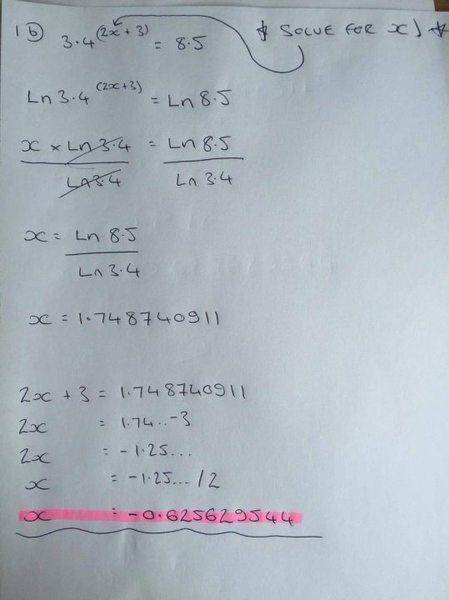 1 b 3.4^(2x + 3) = 8.5 * SOLVE FOR x) *
Ln 3.4^(2x+3) = Ln 8.5
x × Ln 3.4 = Ln 8.5
Ln 3.4 Ln 3.4
x = Ln 8.5
Ln 3.4
x = 1.748740911
2x + 3 = 1.748740911
2x = 1.74..-3
2x = -1.25...
x = -1.25.../2
x = -0.625629544